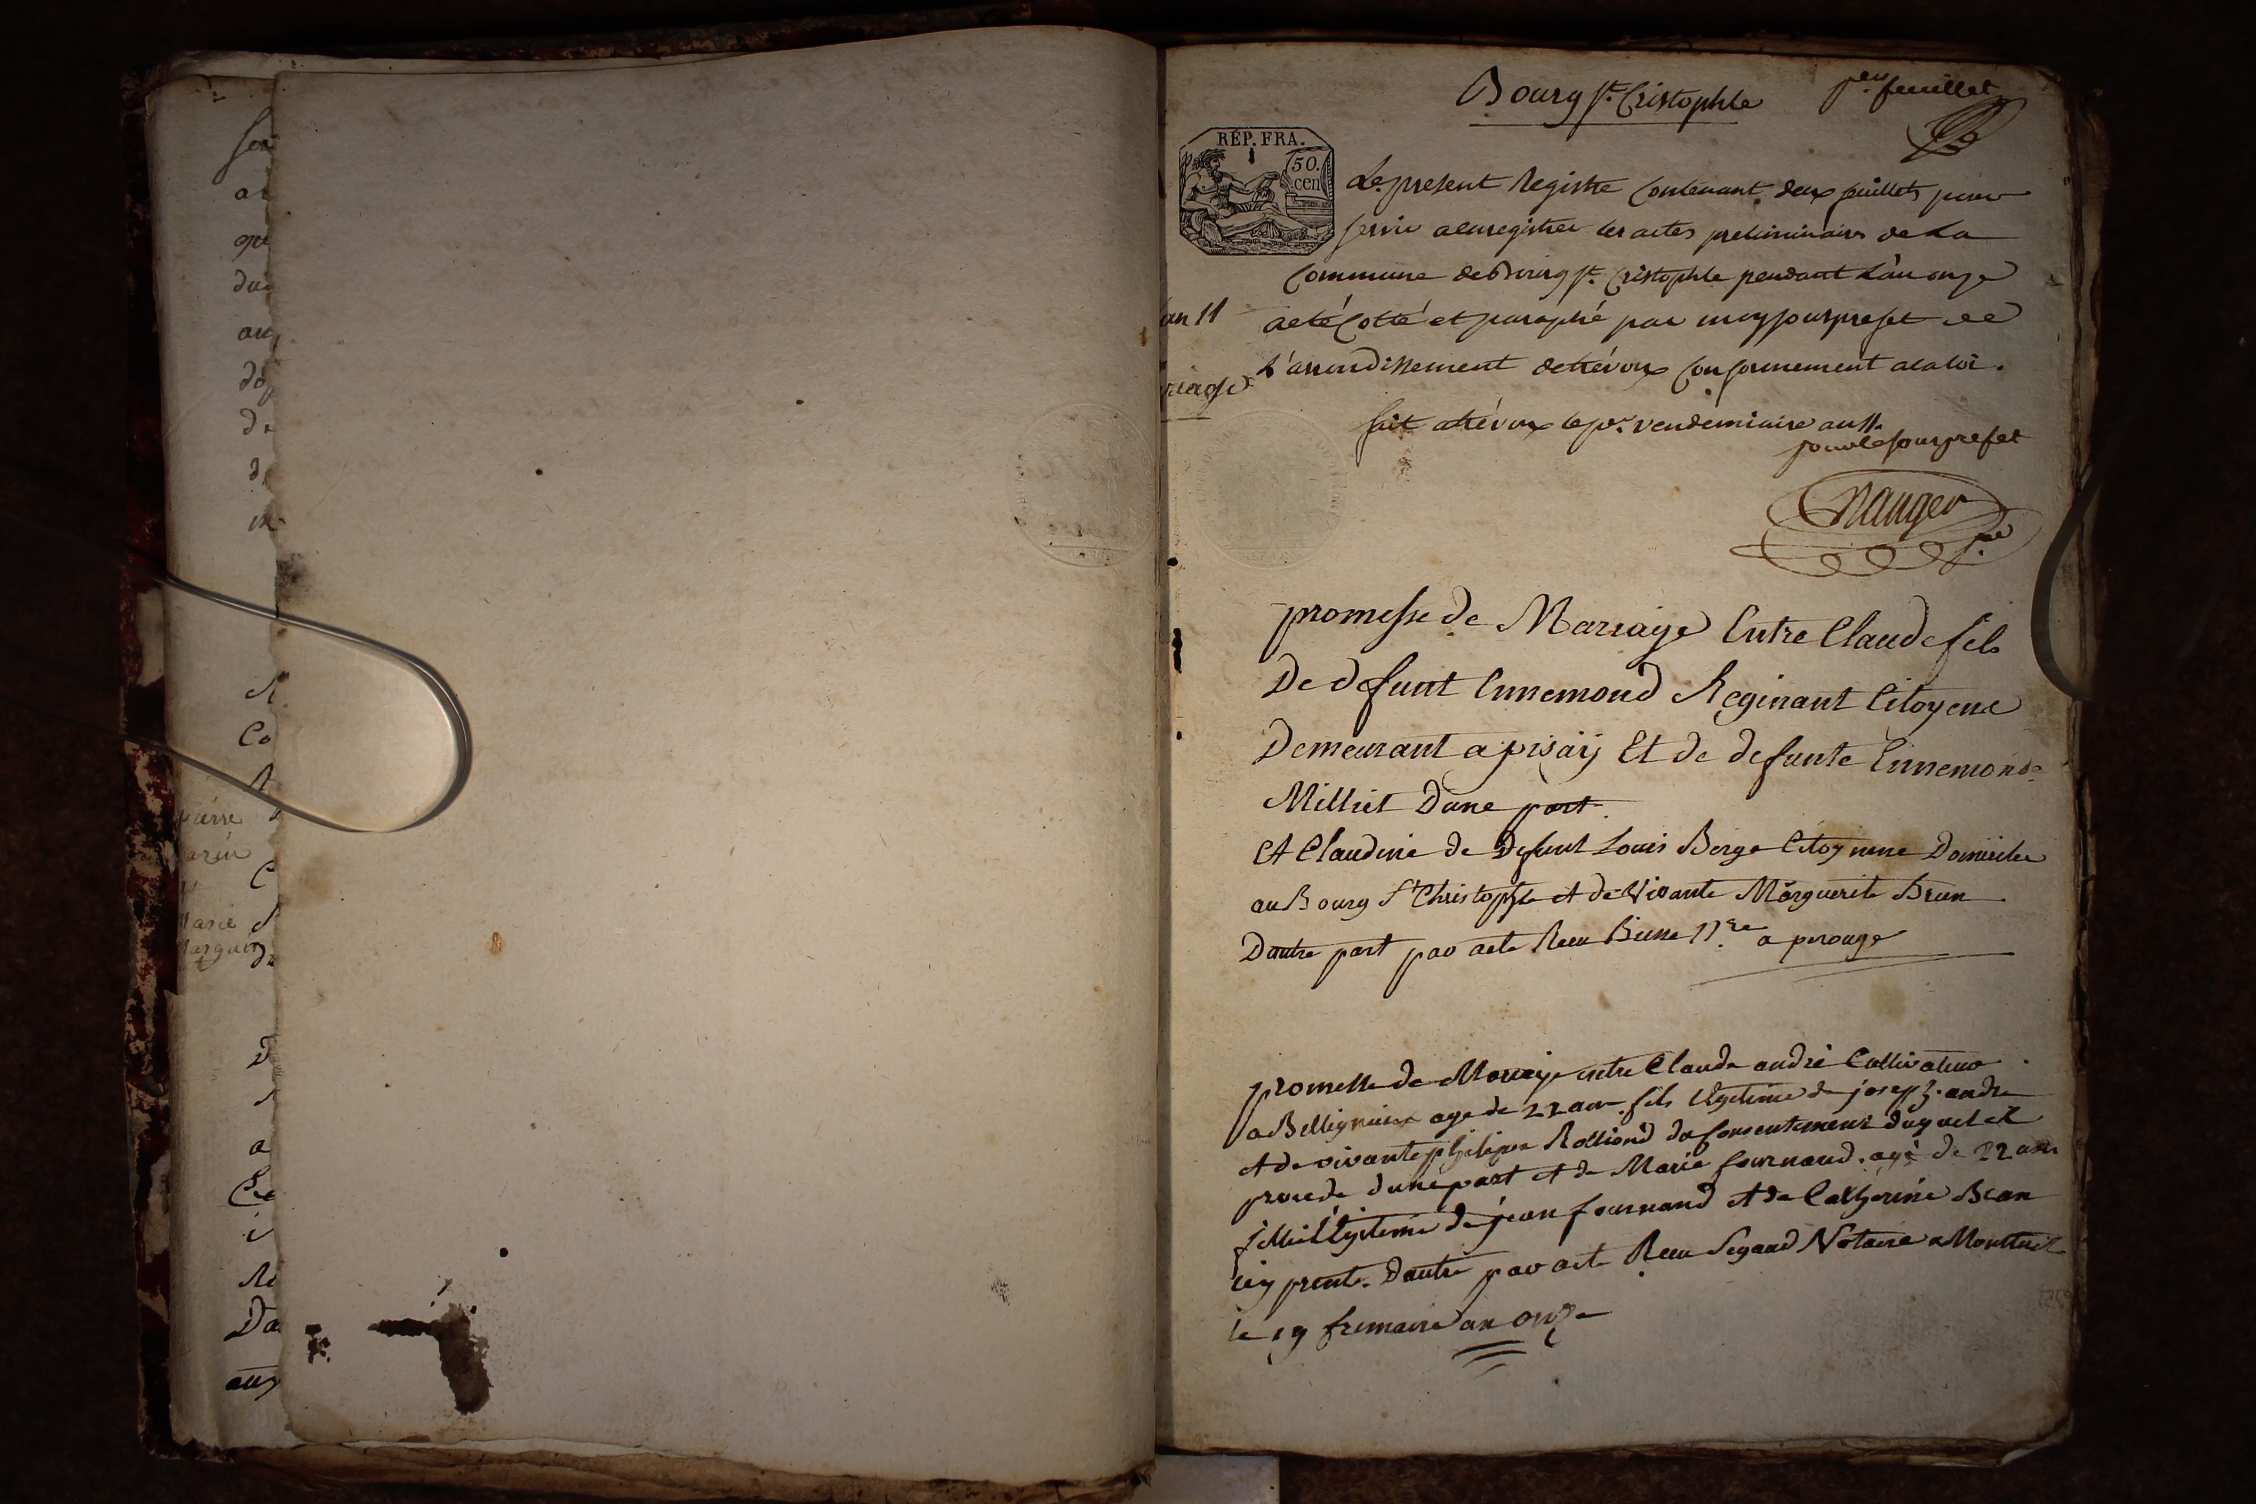 Bourg St. Cristophle
per feuillet
REP. FRA.
50.
cen
Le present Registre Contenant deux feuillets pour
servir a enregistrer les actes preliminaires de La
Commune de Bourg St. Cristophle pendant L'an onze
a eté Cotté et paraphé par moy souspréfet de
L'arrondissement de trévoux Conformement a la loi.
fait a trévoux le per. vendemiaire an 11.
pour le souspréfet
an 11
promesse de Mariage Entre Claude fils
De defunt Ennemond Reginant Citoyene
Demeurant a pisaÿ Et de defunte Ennemonde
Milliet Dune part.
Et Claudine de Defunt Louis Berge Citoyenne Domiciliee
au Bourg St Christophle et de Vivante Marguerite Brun
Dautre part par acte Recu a perouge
promesse de Mariage entre Claude andré Cultivateur
a Bellignieux age de 22 ans fils legitime de joseph andre
et de vivante philipe Rolliond du Consentement duquel il
procede dune part et de Marie fournand agé de 22 ans
fille legitime de jean fournand et de Catherine Bean
icy prente. Dautre par acte Recu Segaud Notaire a Montluel
le 19 frimaire an onze
pierre
Marie